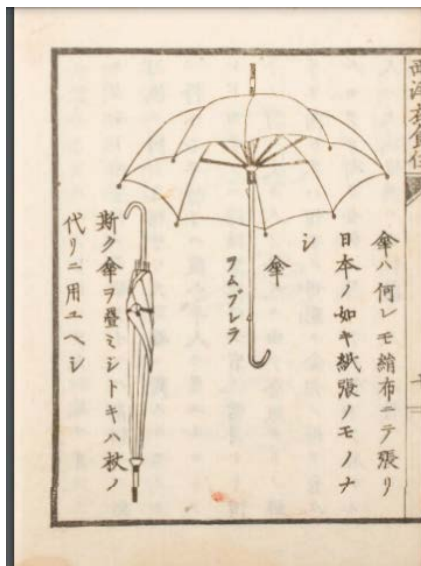 西洋衣食住
傘ハ何レモ絹布ニテ張リ
日本ノ如キ紙張ノモノナ
シ
傘
ヲムブレラ
斯ク傘ヲ疊ミシトキハ杖ノ
代リニ用ユヘシ